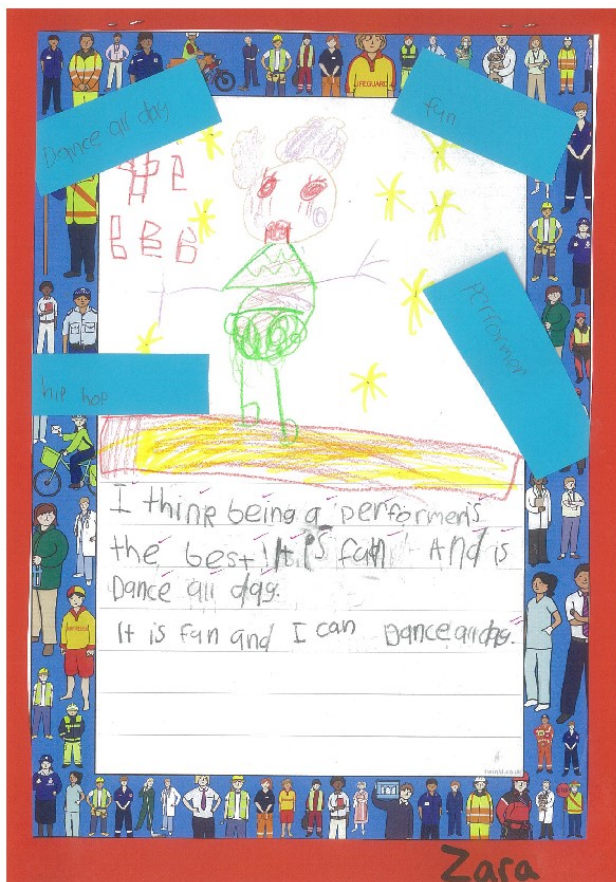 Dance all day
fun
LIFEGUARD
performer
hip hop
I think being a performers
the best! It is fun And is
Dance all day.
It is fun and I can Dance all day.
Zara